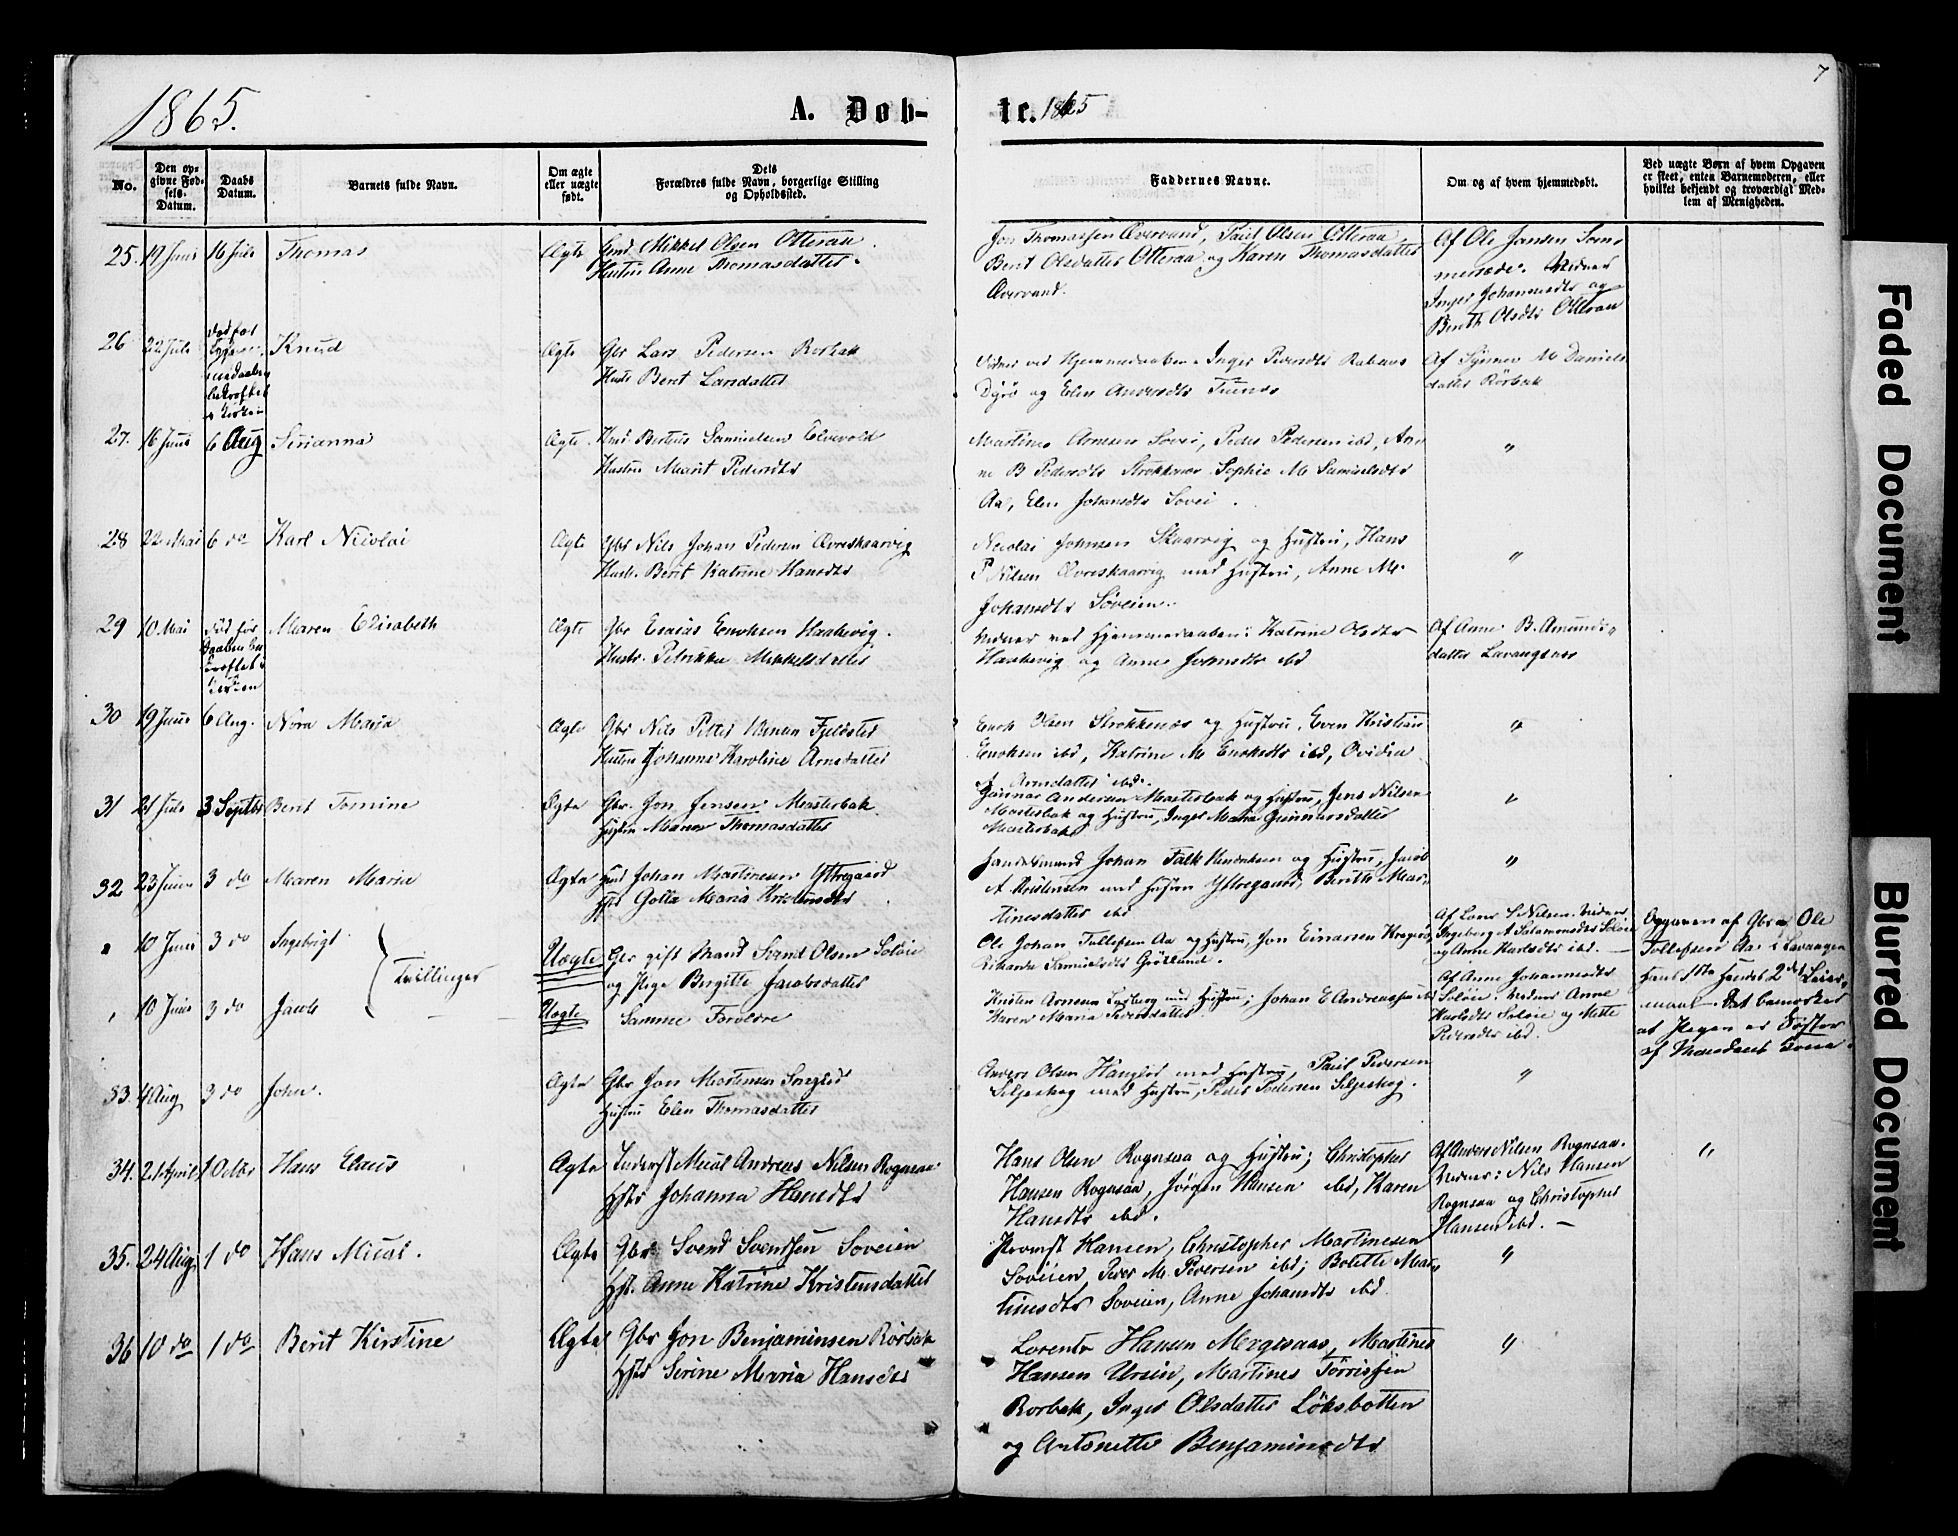 1865.
A. Døb-
te. 1865
7
No.
Den op-
givne Fød-
sels-
Datum.
Daabs
Datum.
Barnets fulde Navn.
Om ægte
eller uægte
født.
Dets
Forældres fulde Navn, borgerlige Stilling
og Opholdssted.
Faddernes Navne.
Om og af hvem hjemmedøbt.
Ved uægte Børn af hvem Opgaven
er skeet, enten Barnemoderen, eller
hvilket bekjendt og troværdigt Med-
lem af Menigheden.
25. 19 Juni 16 Juli Thomas Ægte Mikkel Olsen Otteraa
Hustru Anne Thomasdatter.
Jon Thomassen Øvervand, Paul Olsen Otteraa,
Berit Olsdatter Otteraa og Karen Thomasdatter
Øvervand.
Af Ole Jansen Som-
Inger Johannesdtr og
Berith Olsdtr Otteraa
26 22 Juli Knud Ægte Gbr Lars Pedersen Rørbak
Hustr Berit Larsdatter
ved Hjemmedaaben Inger Pedersdtr
Dyrø og Elen Andersdtr
Af M Daniels
datter Rørbak
27. 16 Juni 6 Aug Ægte. Samuelsen Elvevold
Hustru Marit Pedersdtr
Martines Arnesen Sovei, Peder Pedersen ibd, An-
ne B Pedersdtr Strokkenæs Sophie M Samuelsdtr
Aa, Elen Johansdtr Sovei.
"
28 22 Mai 6 do Karl Nicolai Ægte Gbr Nils Johan Pedersen Øvreskaarvig
Hustr. Berit Katrine Hansdtr
Nicolai Johnsen Skaarvig og Hustru, Hans
P Nilsen Øvreskaarvig med Hustru, Anne M.
Johansdtr Soveien.
"
29 10 Mai Maren Elisabeth Ægte Gbr Esaias Enoksen Haakevig.
Hustr. Petrikke Mikkelsdatter
Vidner ved Hjemmedaaben: Katrine Olsdtr
Haakevig og Anne Johnsdtr ibd
Af Anne B. Amunds-
datter Lavangsnes
30 19 Juni 6 Aug. Nora Maria Ægte Gbr Nils Petter Fjeldsted
Hustru Johanna Karoline Arnsdatter
Enok Olsen Strokkenæs og Hustru, Even Kristian
Enoksen ibd, Katrine M Enoksdtr ibd, Ovidia
Arnsdatter ibd.
"
31 21 Juli 3 Septbr Berit Tomine Ægte Gbr. Jon Jensen Mosterbak
Hustru Maren Thomasdatter
Gunnar Andersen Mosterbak og Hustru, Jens Nilsen
Mosterbak og Hustru, Inger Maria Gunnarsdatter
Mosterbak
"
32 23 Juni 3 do Maren Maria Ægte Johan Martinesen Yttregaard
Hstr Golla Maria Kristensdtr
Johan Falk Hendriksen og Hustru, Jacob
A Kristensen med Hustru Yttregaard, Berith Mar-
tinesdatter ibd
"
" 10 Juni 3 do Ingebrigt
Tvillinger
Uægte Gbr gift Mand Svend Olsen Soløie
og Pige Birgitte Jacobsdatter
Ole Johan Tollefsen Aa og Hustru, Jon Einarsen
Rikarda Samuelsdtr Grøtland.
Ingeborg A Salamonsdtr Soløie
og Anne Karlsdtr ibd.
Opgaven af Gbr Ole
Tollefsen Aa i Lavangen
" 10 Juni 3 do Jacob Uægte Samme Forældre
Kristen Arnesen med Hustru; Johan E Andreassen ibd
Karen Maria Pedersdatter
Af Anne Johannesdtr
Soløie. Vidner Anne
Karlsdtr Soløie og Mette
Pedersdtr ibd.
hans 1ste hendes 2det Leier-
maal. Det bemærkes
at Pigen er Søster
af Mandens Kone.
33. 4 Aug 3 do John. Ægte Gbr Jon Mortensen
Hustru Elen Thomasdatter
Anders Olsen med Hustru, Paul Pedersen
Siljeskog med Hustru, Peder Pedersen Siljeskog.
"
34. 21 April 1 Octbr Hans Claus Ægte Inderst Mical Andreas Nilsen Rognsaa
Hstr Johanna Hansdtr
Hans Olsen Rognsaa og Hustru; Christopher
Hansen Rognsaa, Jørgen Hansen ibd, Karen
Hansdtr ibd.
Af Anders Nilsen Rognsaa.
Vidner: Nils Hansen
Rognsaa og Christopher
Hansen ibd. —
"
35. 24 Aug. 1 do Hans Mical. Ægte Gbr Svend Svendsen Soveien
Hst. Anne Katrine Kristensdatter
Hansen, Christopher Martinesen
Soveien, Peder M. Pedersen ibd; Bolette Mar-
tinesdtr Soveien, Anne Johansdtr ibd.
"
36 10 do 1 do Berit Kirstine Ægte Gbr Jon Benjaminsen Rørbak
Hstr Serine Maria Hansdtr
Lorents Hansen, Martines
Hansen Ursin, Martines Tørrissen
Rørbak, Inger Olsdatter Løksbotten
og Antonette Benjaminsdtr
"
Faded Document
Blurred Document